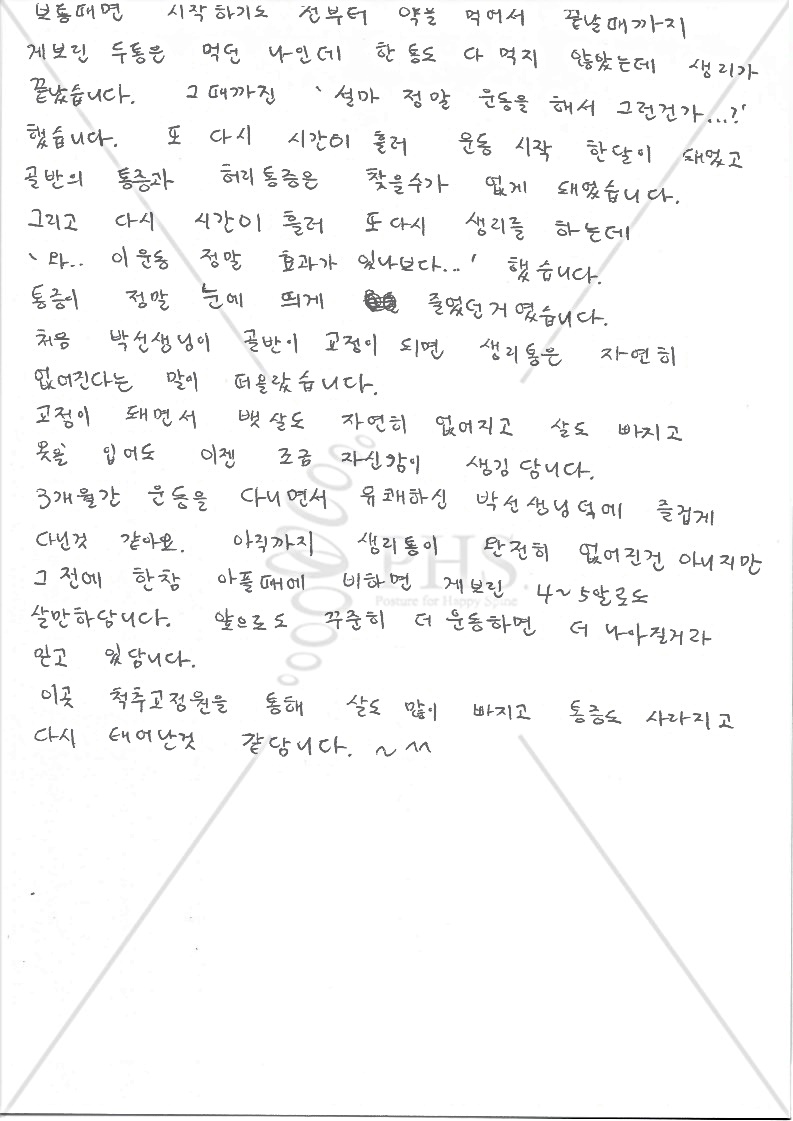 보통때면 시작하기도 전부터 약을 먹어서 끝날때까지
게보린 두통은 먹던 나인데 한통도 다 먹지 않았는데 생리가
끝났습니다. 그때까진 '설마 정말 운동을 해서 그런건가...?'
했습니다. 또 다시 시간이 흘러 운동 시작 한달이 돼었고
골반의 통증과 허리통증은 찾을수가 없게 돼었습니다.
그리고 다시 시간이 흘러 또다시 생리를 하는데
'와.. 이운동 정말 효과가 있나보다...' 했습니다.
통증이 정말 눈에 띄게 줄었던거였습니다.
처음 박선생님이 골반이 교정이 되면 생리통은 자연히
없어진다는 말이 떠올랐습니다.
교정이 돼면서 뱃살도 자연히 없어지고 살도 빠지고
옷을 입어도 이젠 조금 자신감이 생김답니다.
3개월간 운동을 다니면서 유쾌하신 박선생님덕에 즐겁게
다닌것 같아요. 아직까지 생리통이 완전히 없어진건 아니지만
그 전에 한참 아플때에 비하면 게보린 4~5알로도
살만하답니다. 앞으로도 꾸준히 더 운동하면 더 나아질거라
믿고 있답니다.
이곳 척추교정원을 통해 살도 많이 빠지고 통증도 사라지고
다시 태어난것 같답니다. ~^^
PHS.
Posture for Happy Spine